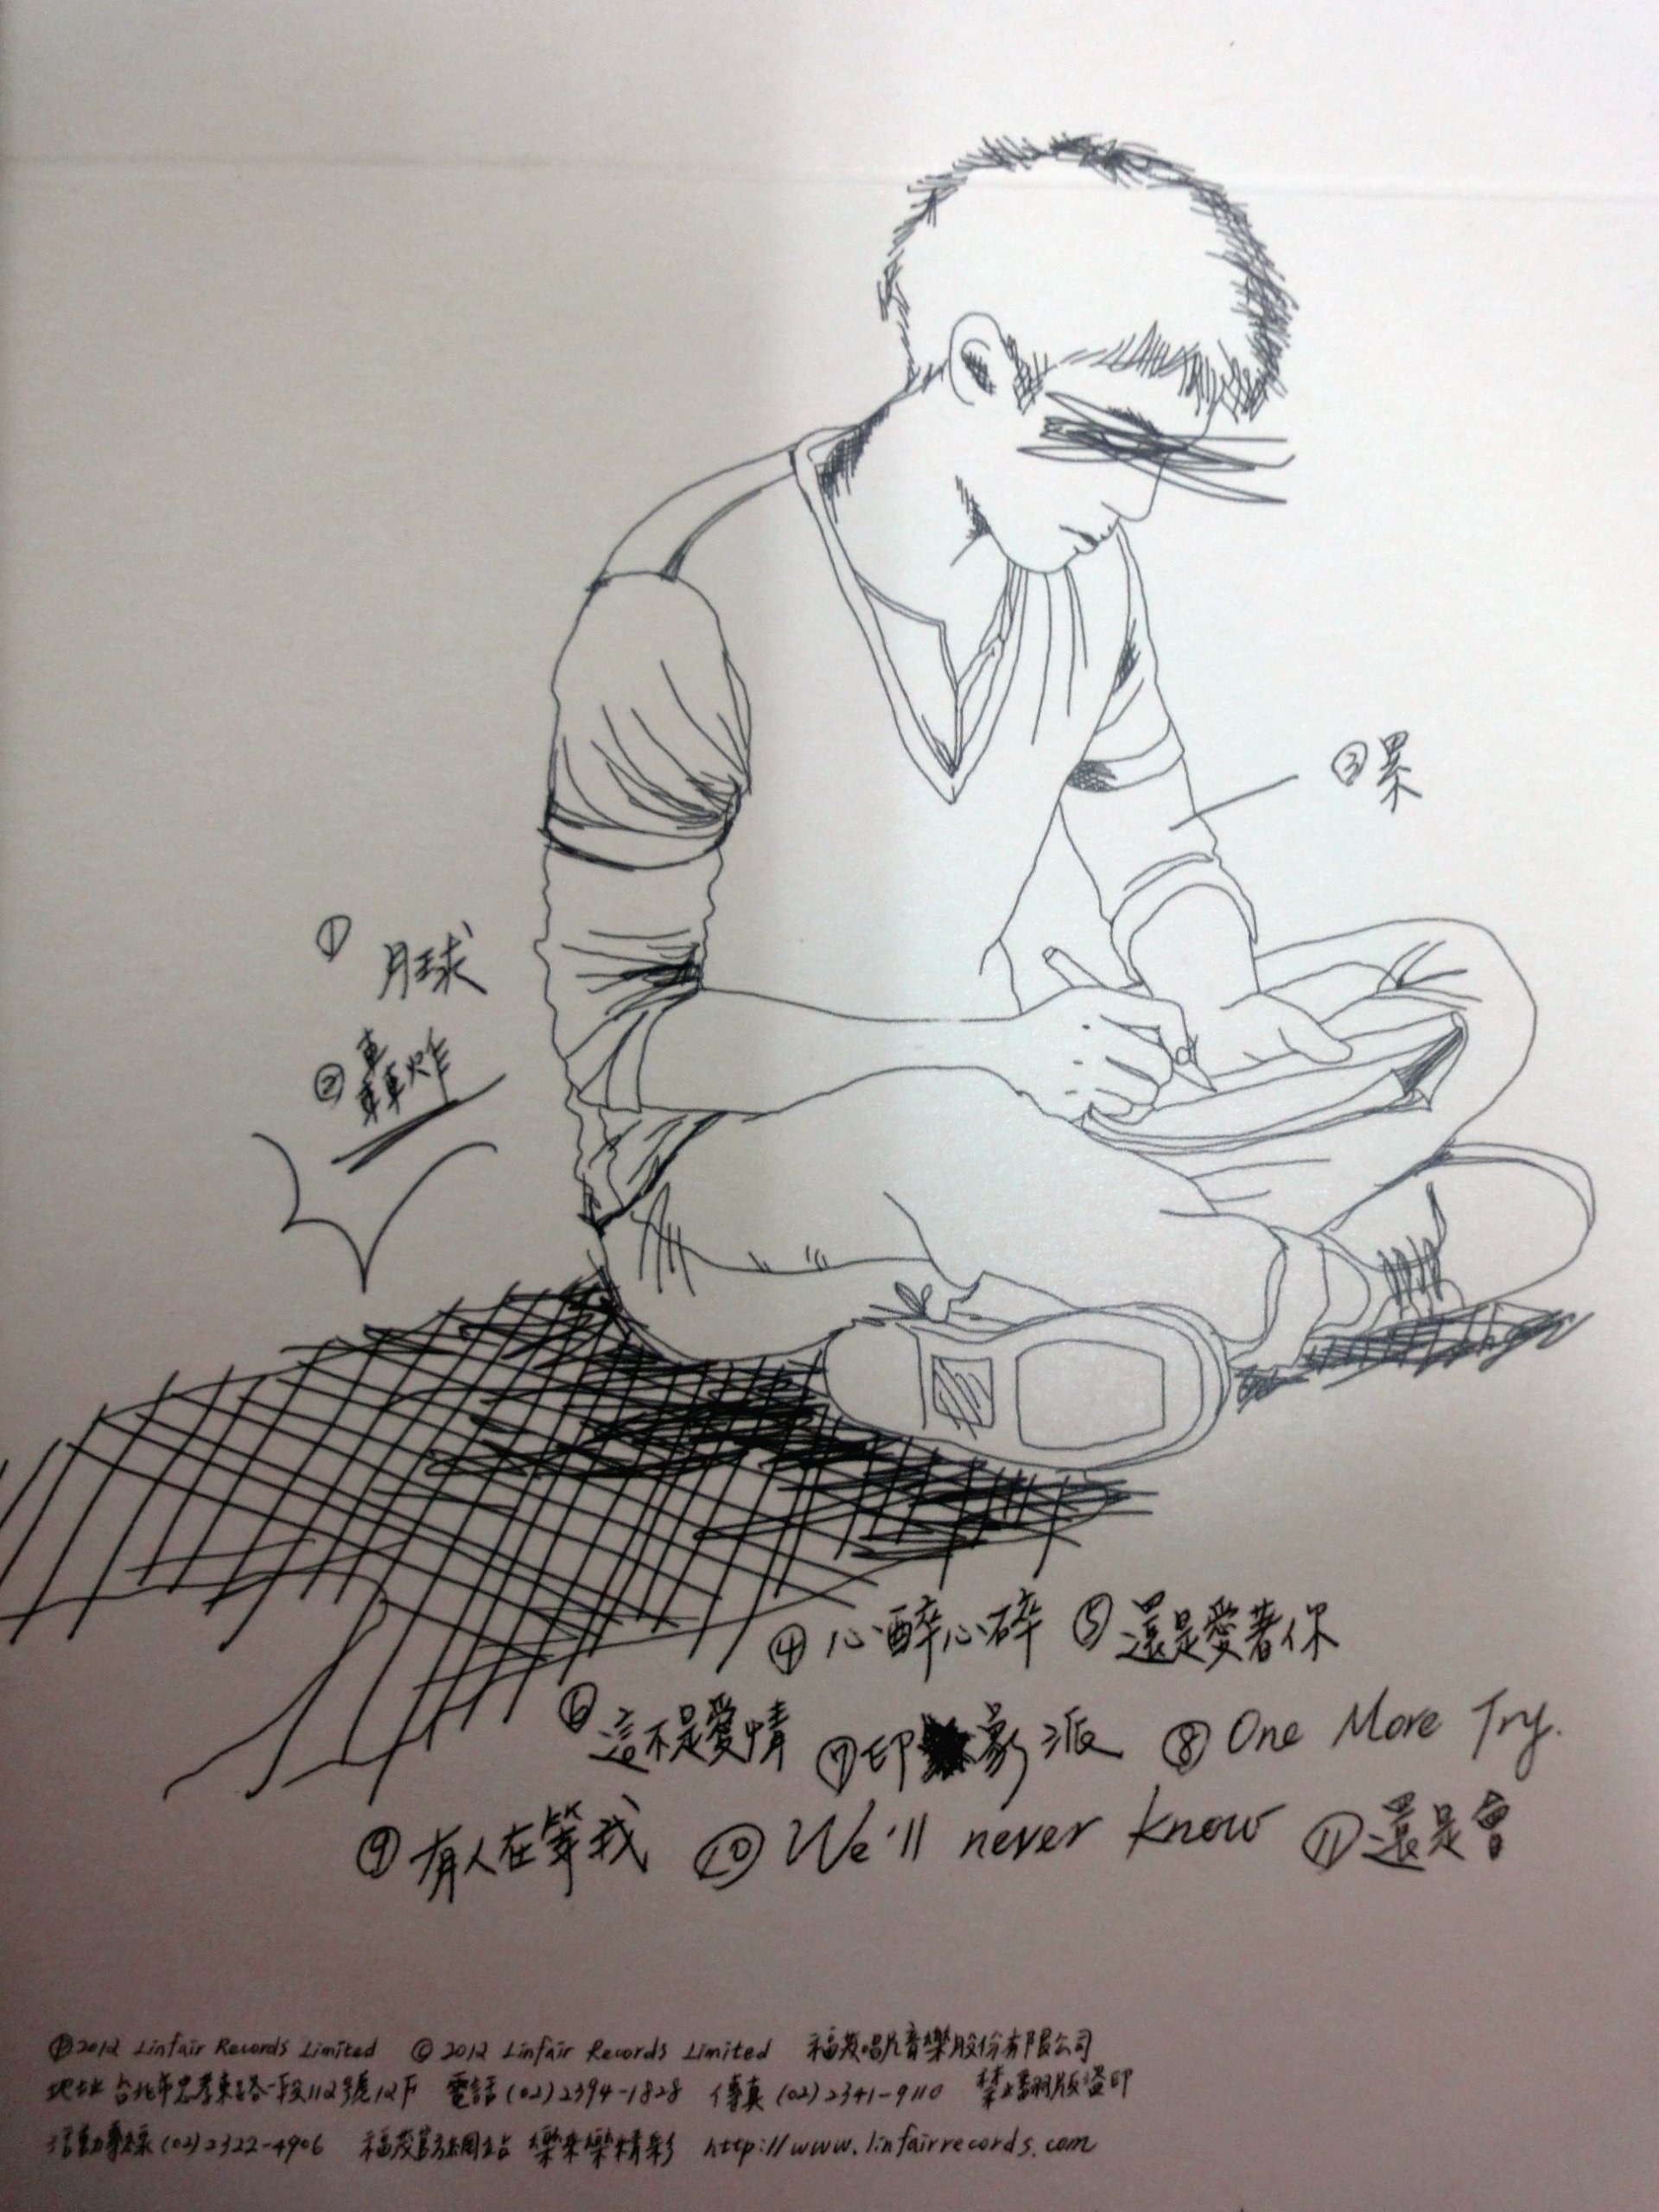 ① 月球
② 轟炸
③ 累
④ 心醉心碎 ⑤ 還是愛著你
⑥ 這不是愛情 ⑦ 印象派 ⑧ One More Try.
⑨ 有人在等我 ⑩ We'll never know ⑪ 還是會
Ⓟ2012 Linfair Records Limited © 2012 Linfair Records Limited 福茂唱片音樂股份有限公司
地址 台北市忠孝東路一段112號12F 電話 (02)2394-1828 傳真 (02)2341-9110 禁止翻版盜印
活動專線 (02)2322-4906 福茂官方網站 樂來樂精彩 http://www.linfairrecords.com